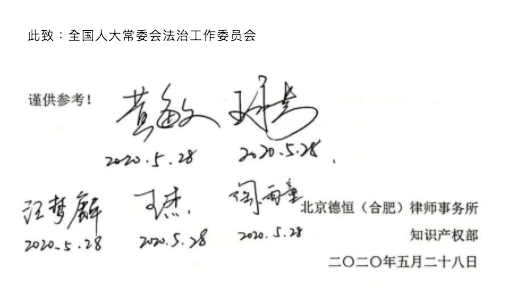 此致：全国人大常委会法治工作委员会
谨供参考！
黄敏文
2020.5.28 2020.5.28
汪梦麟 王杰 陶雨童
2020.5.28 2020.5.28 2020.5.28
北京德恒（合肥）律师事务所
知识产权部
二〇二〇年五月二十八日